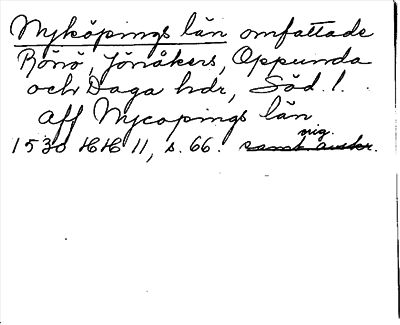 Nyköpings län omfattade
Rönö, Jönåkers, Oppunda
och Daga hdr, Söd. l.
aff Nycopings län
1530 HH 11, s. 66. samt avskr. nig.